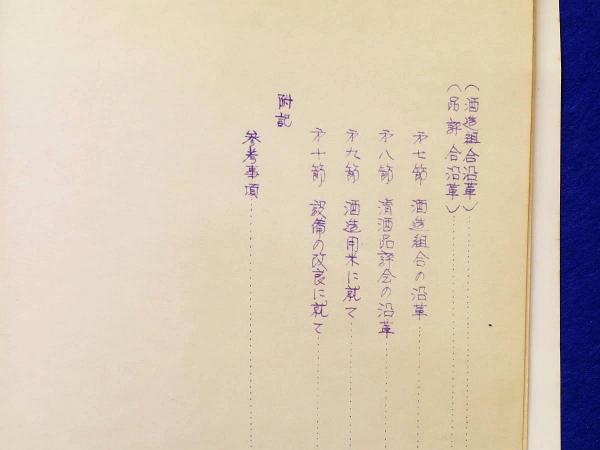 (酒造組合沿革)
(品評会沿革)
才七節 酒造組合の沿革
才八節 清酒品評会の沿革
才九節 酒造用米に就て
才十節 設備の改良に就て
附記
参考事項